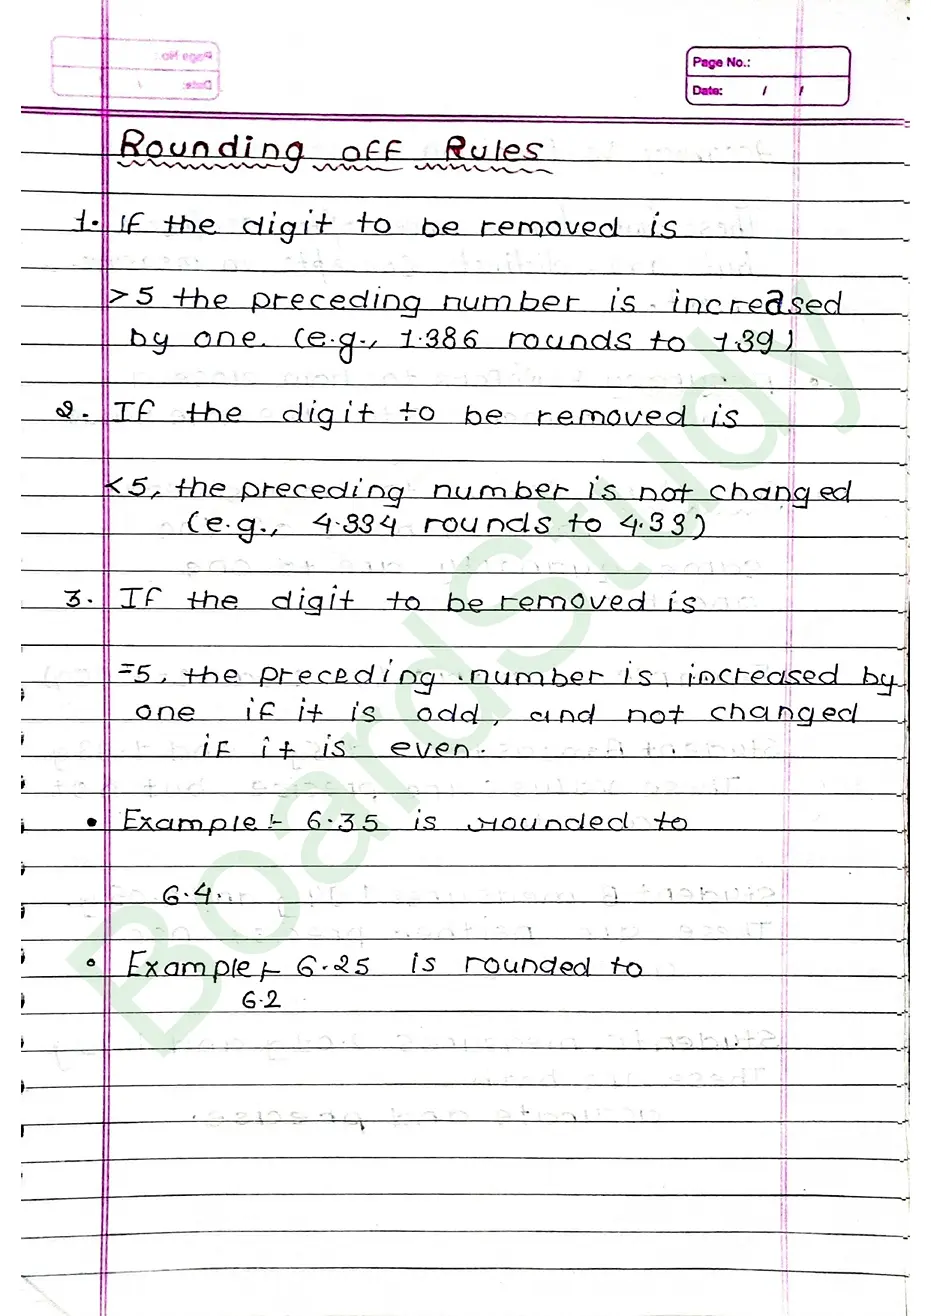 Page No.:
Date: / /
Rounding off Rules
1. If the digit to be removed is
>5 the preceding number is increased
by one. (e.g., 1.386 rounds to 1.39)
2. If the digit to be removed is
<5, the preceding number is not changed
(e.g., 4.334 rounds to 4.33)
3. If the digit to be removed is
=5, the preceding number is increased by
one if it is odd, and not changed
if it is even.
• Example:- 6.35 is rounded to
6.4.
• Example:- 6.25 is rounded to
6.2
BoardStudy